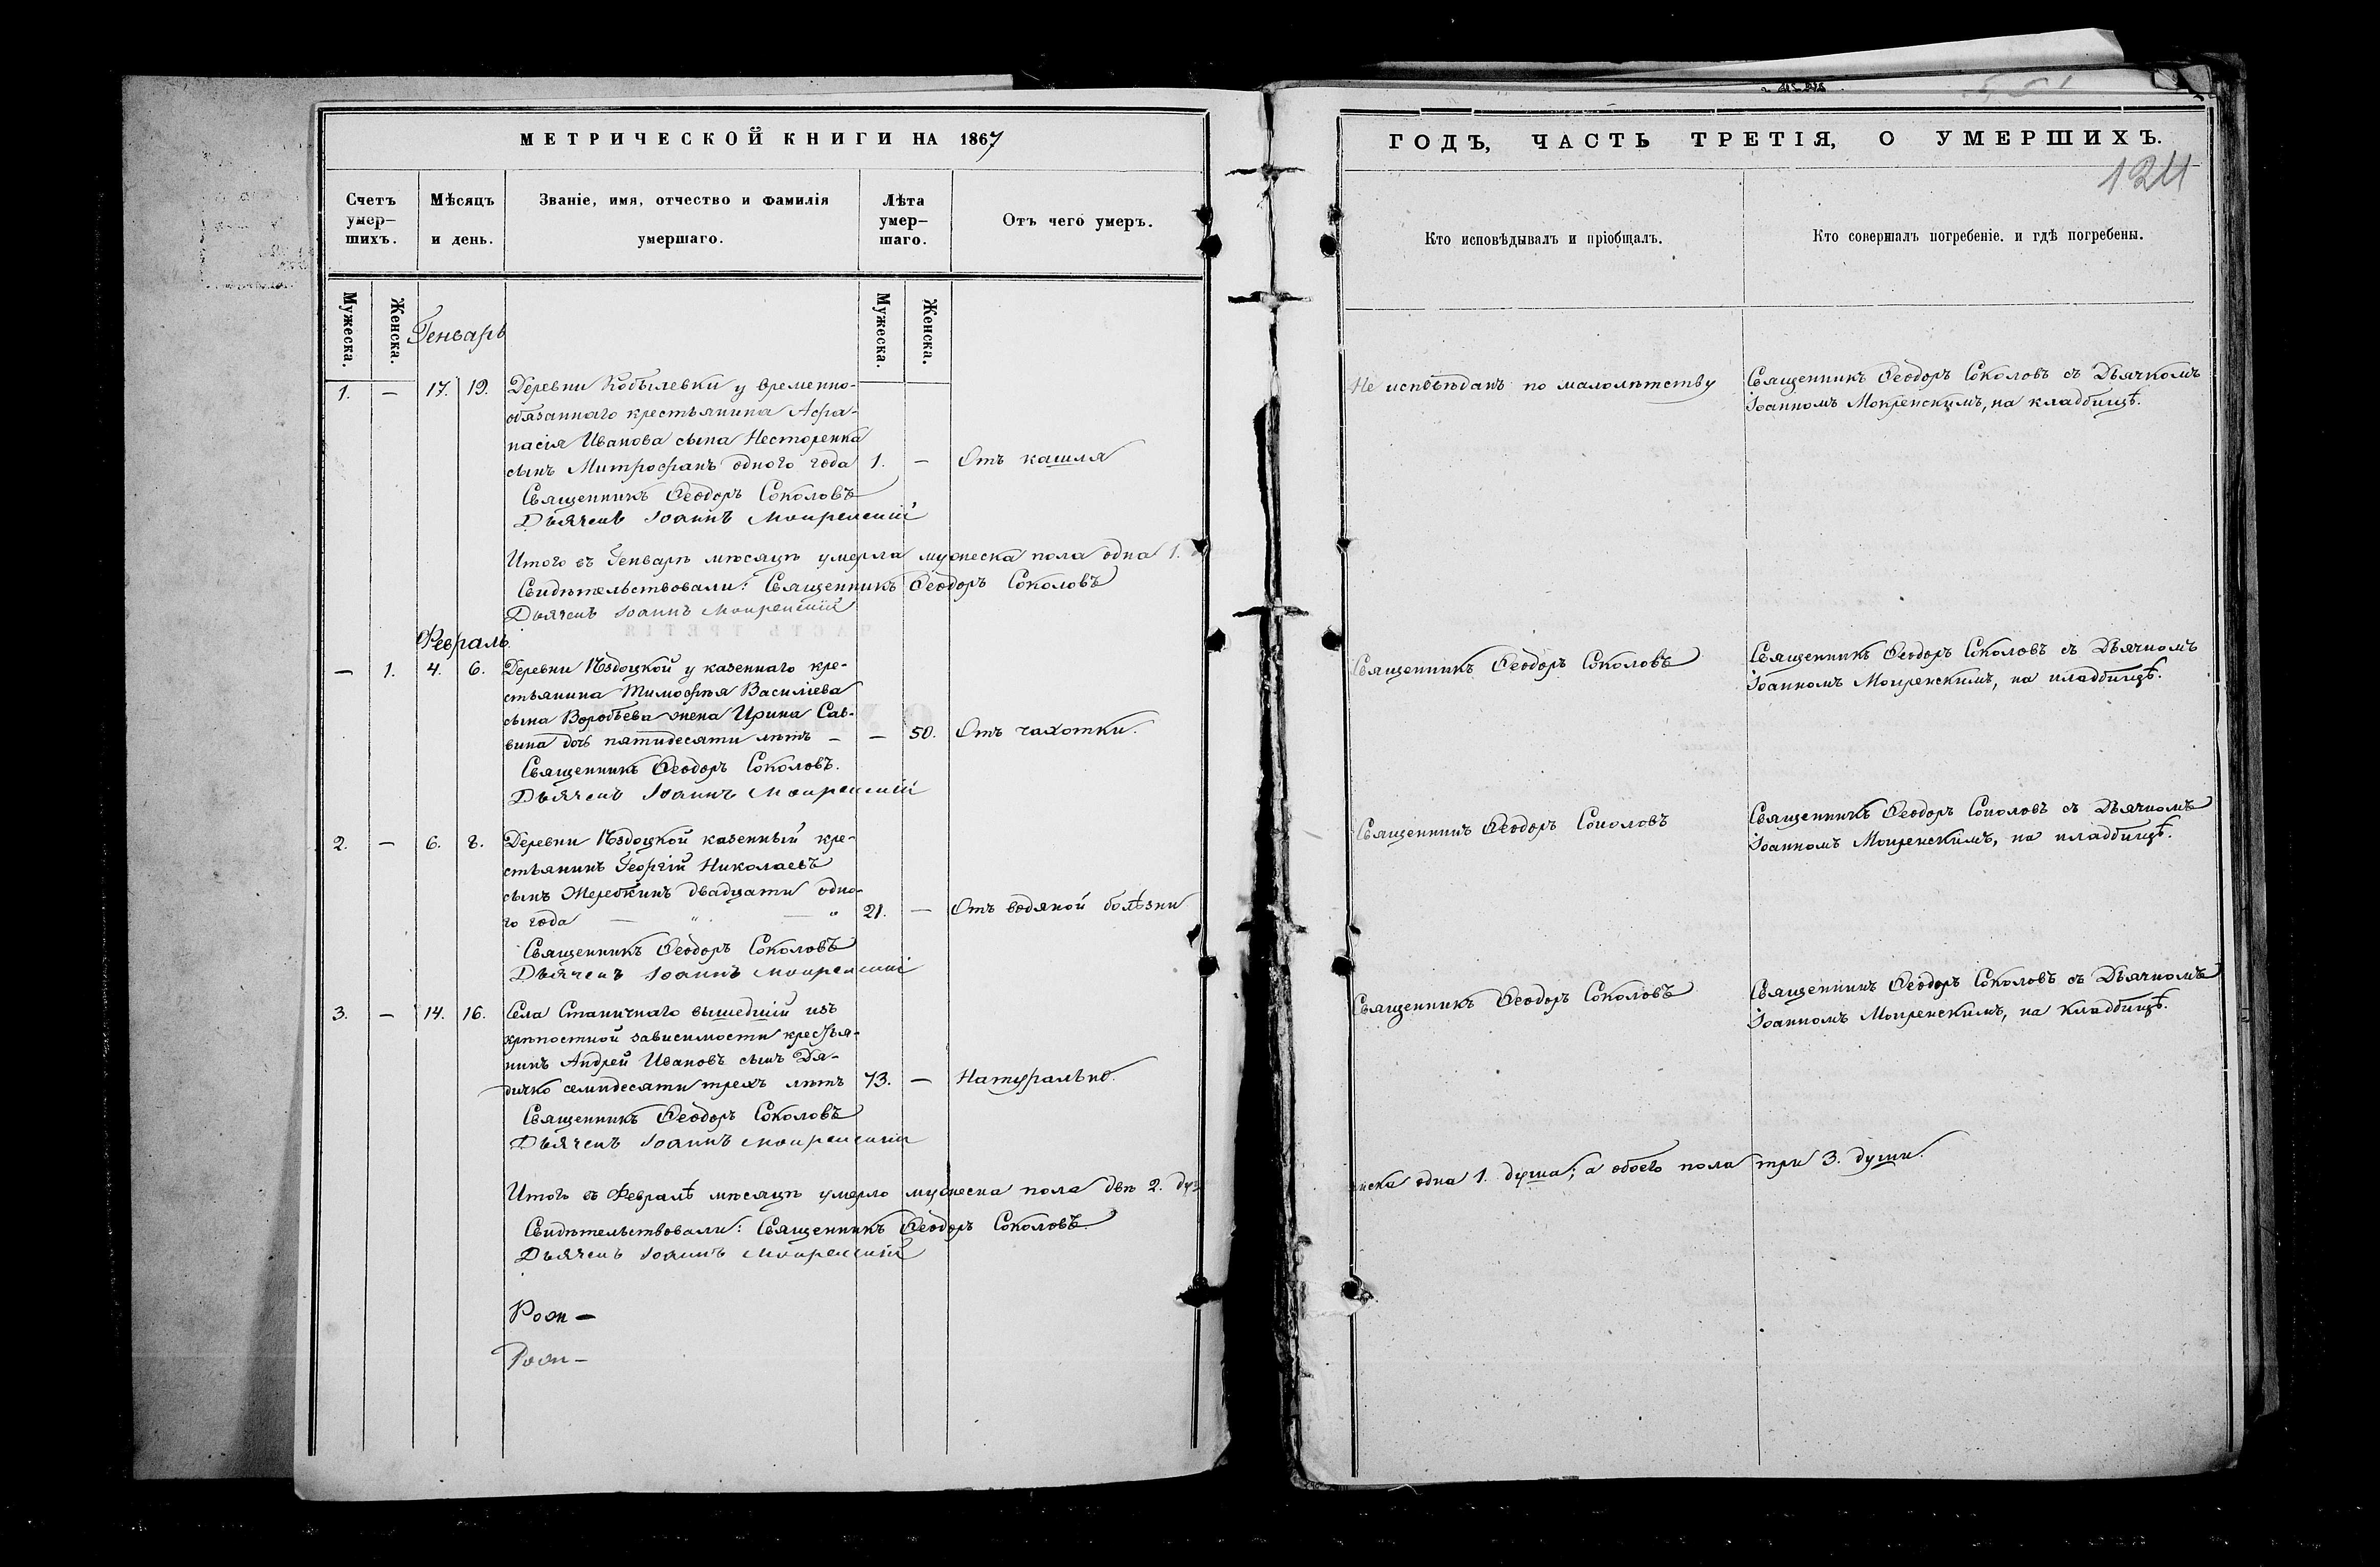 МЕТРИЧЕСКОЙ КНИГИ НА 1867
Счетъ умер-шихъ.
Мѣсяцъ и день.
Званіе, имя, отчество и фамилія умершаго.
Лѣта умер-шаго.
Отъ чего умеръ.
Мужеска.
Женска.
Генварь
Мужеска.
Женска.
1. — 17. 19. Деревни Кобылевки у временно-
обязаннаго крестьянина Афа-
насія Иванова сына Нестеренка
сынъ Митрофанъ одного года 1. — Отъ кашля
Священникъ Ѳеодоръ Соколовъ
Дьячекъ Іоаннъ Мокренскій
Итого въ Генварѣ мѣсяцѣ умерла мужеска пола одна 1.
Свидѣтельствовали: Священникъ Ѳеодоръ Соколовъ
Дьячекъ Іоаннъ Мокренскій
Февраль
— 1. 4. 6. Деревни Ѣздоцкой у казеннаго кре-
стьянина Тимофѣя Василіева
сына Воробьева жена Ирина Сав-
вина дочь пятидесяти лѣтъ — — 50. Отъ чахотки.
Священникъ Ѳеодоръ Соколовъ.
Дьячекъ Іоаннъ Мокренскій
2. — 6. 8. Деревни Ѣздоцкой казенный кре-
стьянинъ Георгій Николаевъ
сынъ Жеребкинъ двадцати одно-
го года — " — " 21. — Отъ водяной болѣзни
Священникъ Ѳеодоръ Соколовъ
Дьячекъ Іоаннъ Мокренскій
3. — 14. 16. Села Станичнаго вышедшій изъ
крѣпостной зависимости крестья-
нинъ Андрей Ивановъ сынъ Дя-
дичко семидесяти трехъ лѣтъ 73. — Натурально.
Священникъ Ѳеодоръ Соколовъ
Дьячекъ Іоаннъ Мокренскій
Итого въ Февралѣ мѣсяцѣ умерло мужеска пола двѣ 2. ду
Свидѣтельствовали: Священникъ Ѳеодоръ Соколовъ
Дьячекъ Іоаннъ Мокренскій
ГОДЪ, ЧАСТЬ ТРЕТІЯ, О УМЕРШИХЪ.
124
Кто исповѣдывалъ и пріобщалъ.
Кто совершалъ погребеніе. и гдѣ погребены.
Не исповѣданъ по малолѣтству
Священникъ Ѳеодоръ Соколовъ съ Дьячкомъ
Іоанномъ Мокренскимъ, на кладбищѣ.
Священникъ Ѳеодоръ Соколовъ
Священникъ Ѳеодоръ Соколовъ съ Дьячкомъ
Іоанномъ Мокренскимъ, на кладбищѣ.
Священникъ Ѳеодоръ Соколовъ
Священникъ Ѳеодоръ Соколовъ съ Дьячкомъ
Іоанномъ Мокренскимъ, на кладбищѣ.
Священникъ Ѳеодоръ Соколовъ
Священникъ Ѳеодоръ Соколовъ съ Дьячкомъ
Іоанномъ Мокренскимъ, на кладбищѣ.
нска одна 1. душа; а обоего пола три 3. души.